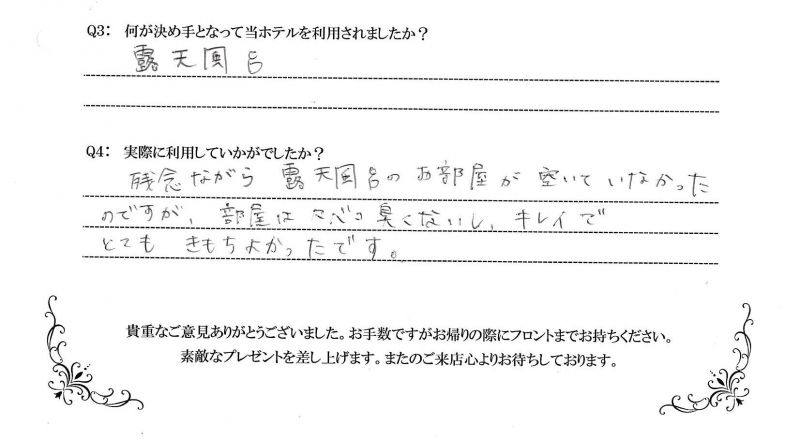 Q3: 何が決め手となって当ホテルを利用されましたか？
露天風呂
Q4: 実際に利用していかがでしたか？
残念ながら 露天風呂のお部屋が空いていなかった
のですが、部屋はタバコ臭くないし、キレイで
とても きもちよかったです。
貴重なご意見ありがとうございました。お手数ですがお帰りの際にフロントまでお持ちください。
素敵なプレゼントを差し上げます。またのご来店心よりお待ちしております。